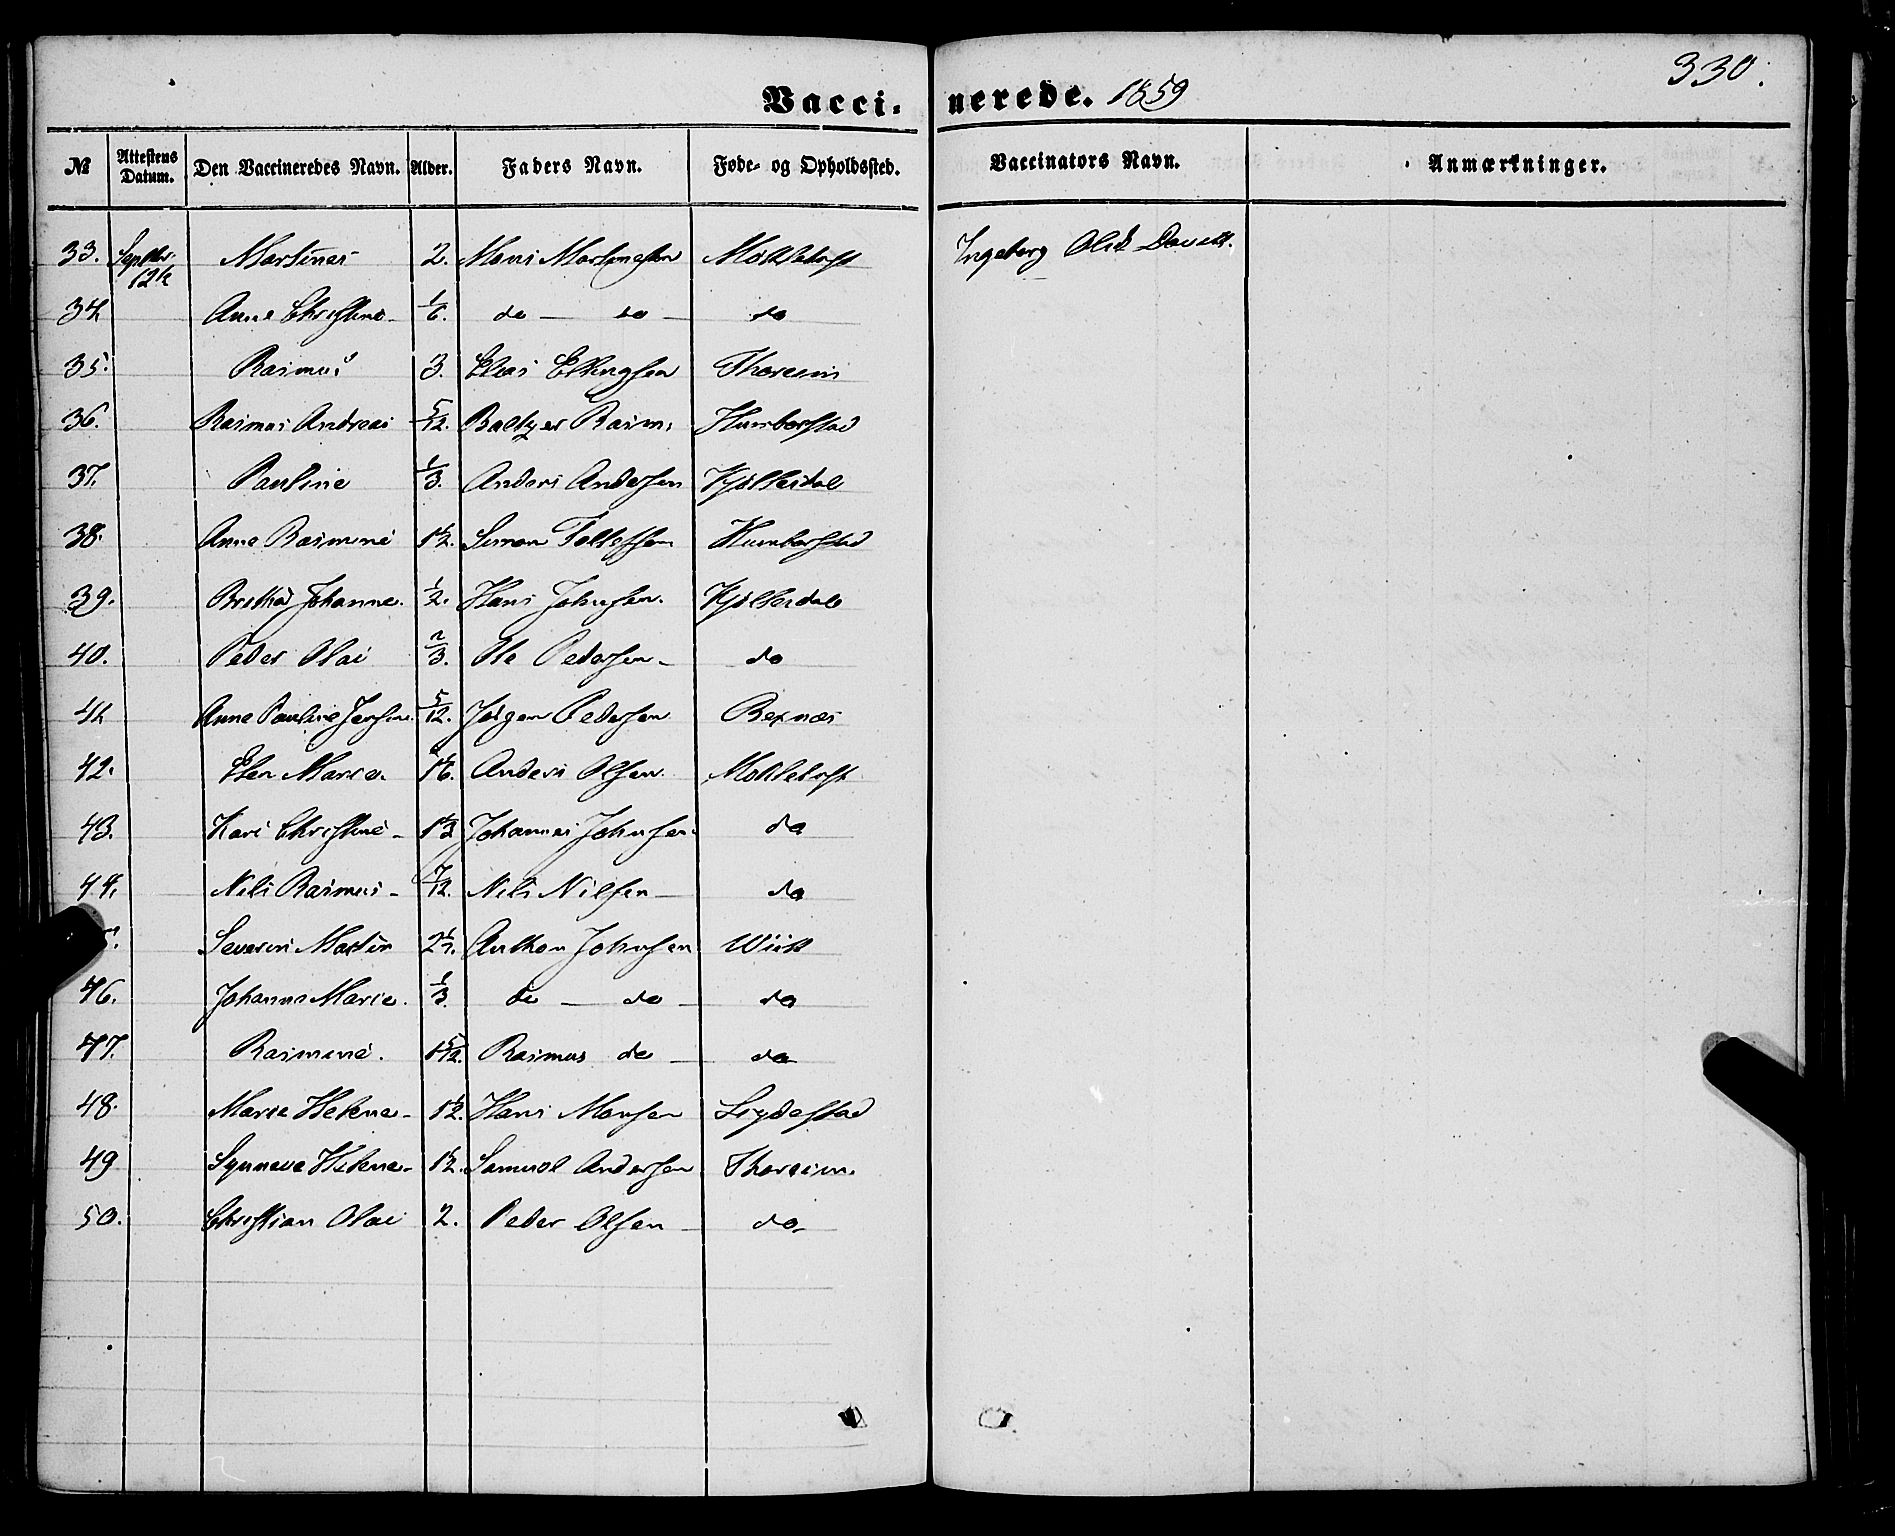 330.
Vacci- nerede. 1859
№ Attestens Datum. Den Vaccineredes Navn. Alder. Faders Navn. Føde- og Opholdssted. Vaccinators Navn. Anmærkninger.
33. Septbr. 12te Martinus 2. Mons Martinesen Mollebust Ingeborg
34 Anne Christine 1/6. do — do — do
35. Rasmus 3. Elias Ellingsen Thoreim
36. Rasmus Andreas 5/12. Baltzer Rasm. Humborstad
37. Pauline 1/3. Anders Andersen Kjølsdal
38. Anne Rasmine 1 1/2. Simon Humborstad
39. Brithe Johanne. 1/2. Hans Johnsen.
40. Peder Olai 2/3. Ole Pedersen - do
41 Anne Pauline 5/12. Jørgen Pedersen Rexnæs
42. Elen Marie. 1 1/6. Anders Olsen. Mollebust
43. Kari Christine - 1 1/3 Johannes Johnsen. do
44. Nils Rasmus - 7/12. Nils Nilsen — do
Severin Martin Anthon Johnsen Wiik
46. Johanne Marie. 1/3. do — do — do
47. Rasmine. 1 5/12. Rasmus do — do
48. Marie Helene - 1 1/2. Hans Monsen
49 Synneve Helene - 1 1/2. Samuel Andersen Thoreim.
50. Christian Olai 2. Peder Olsen — do